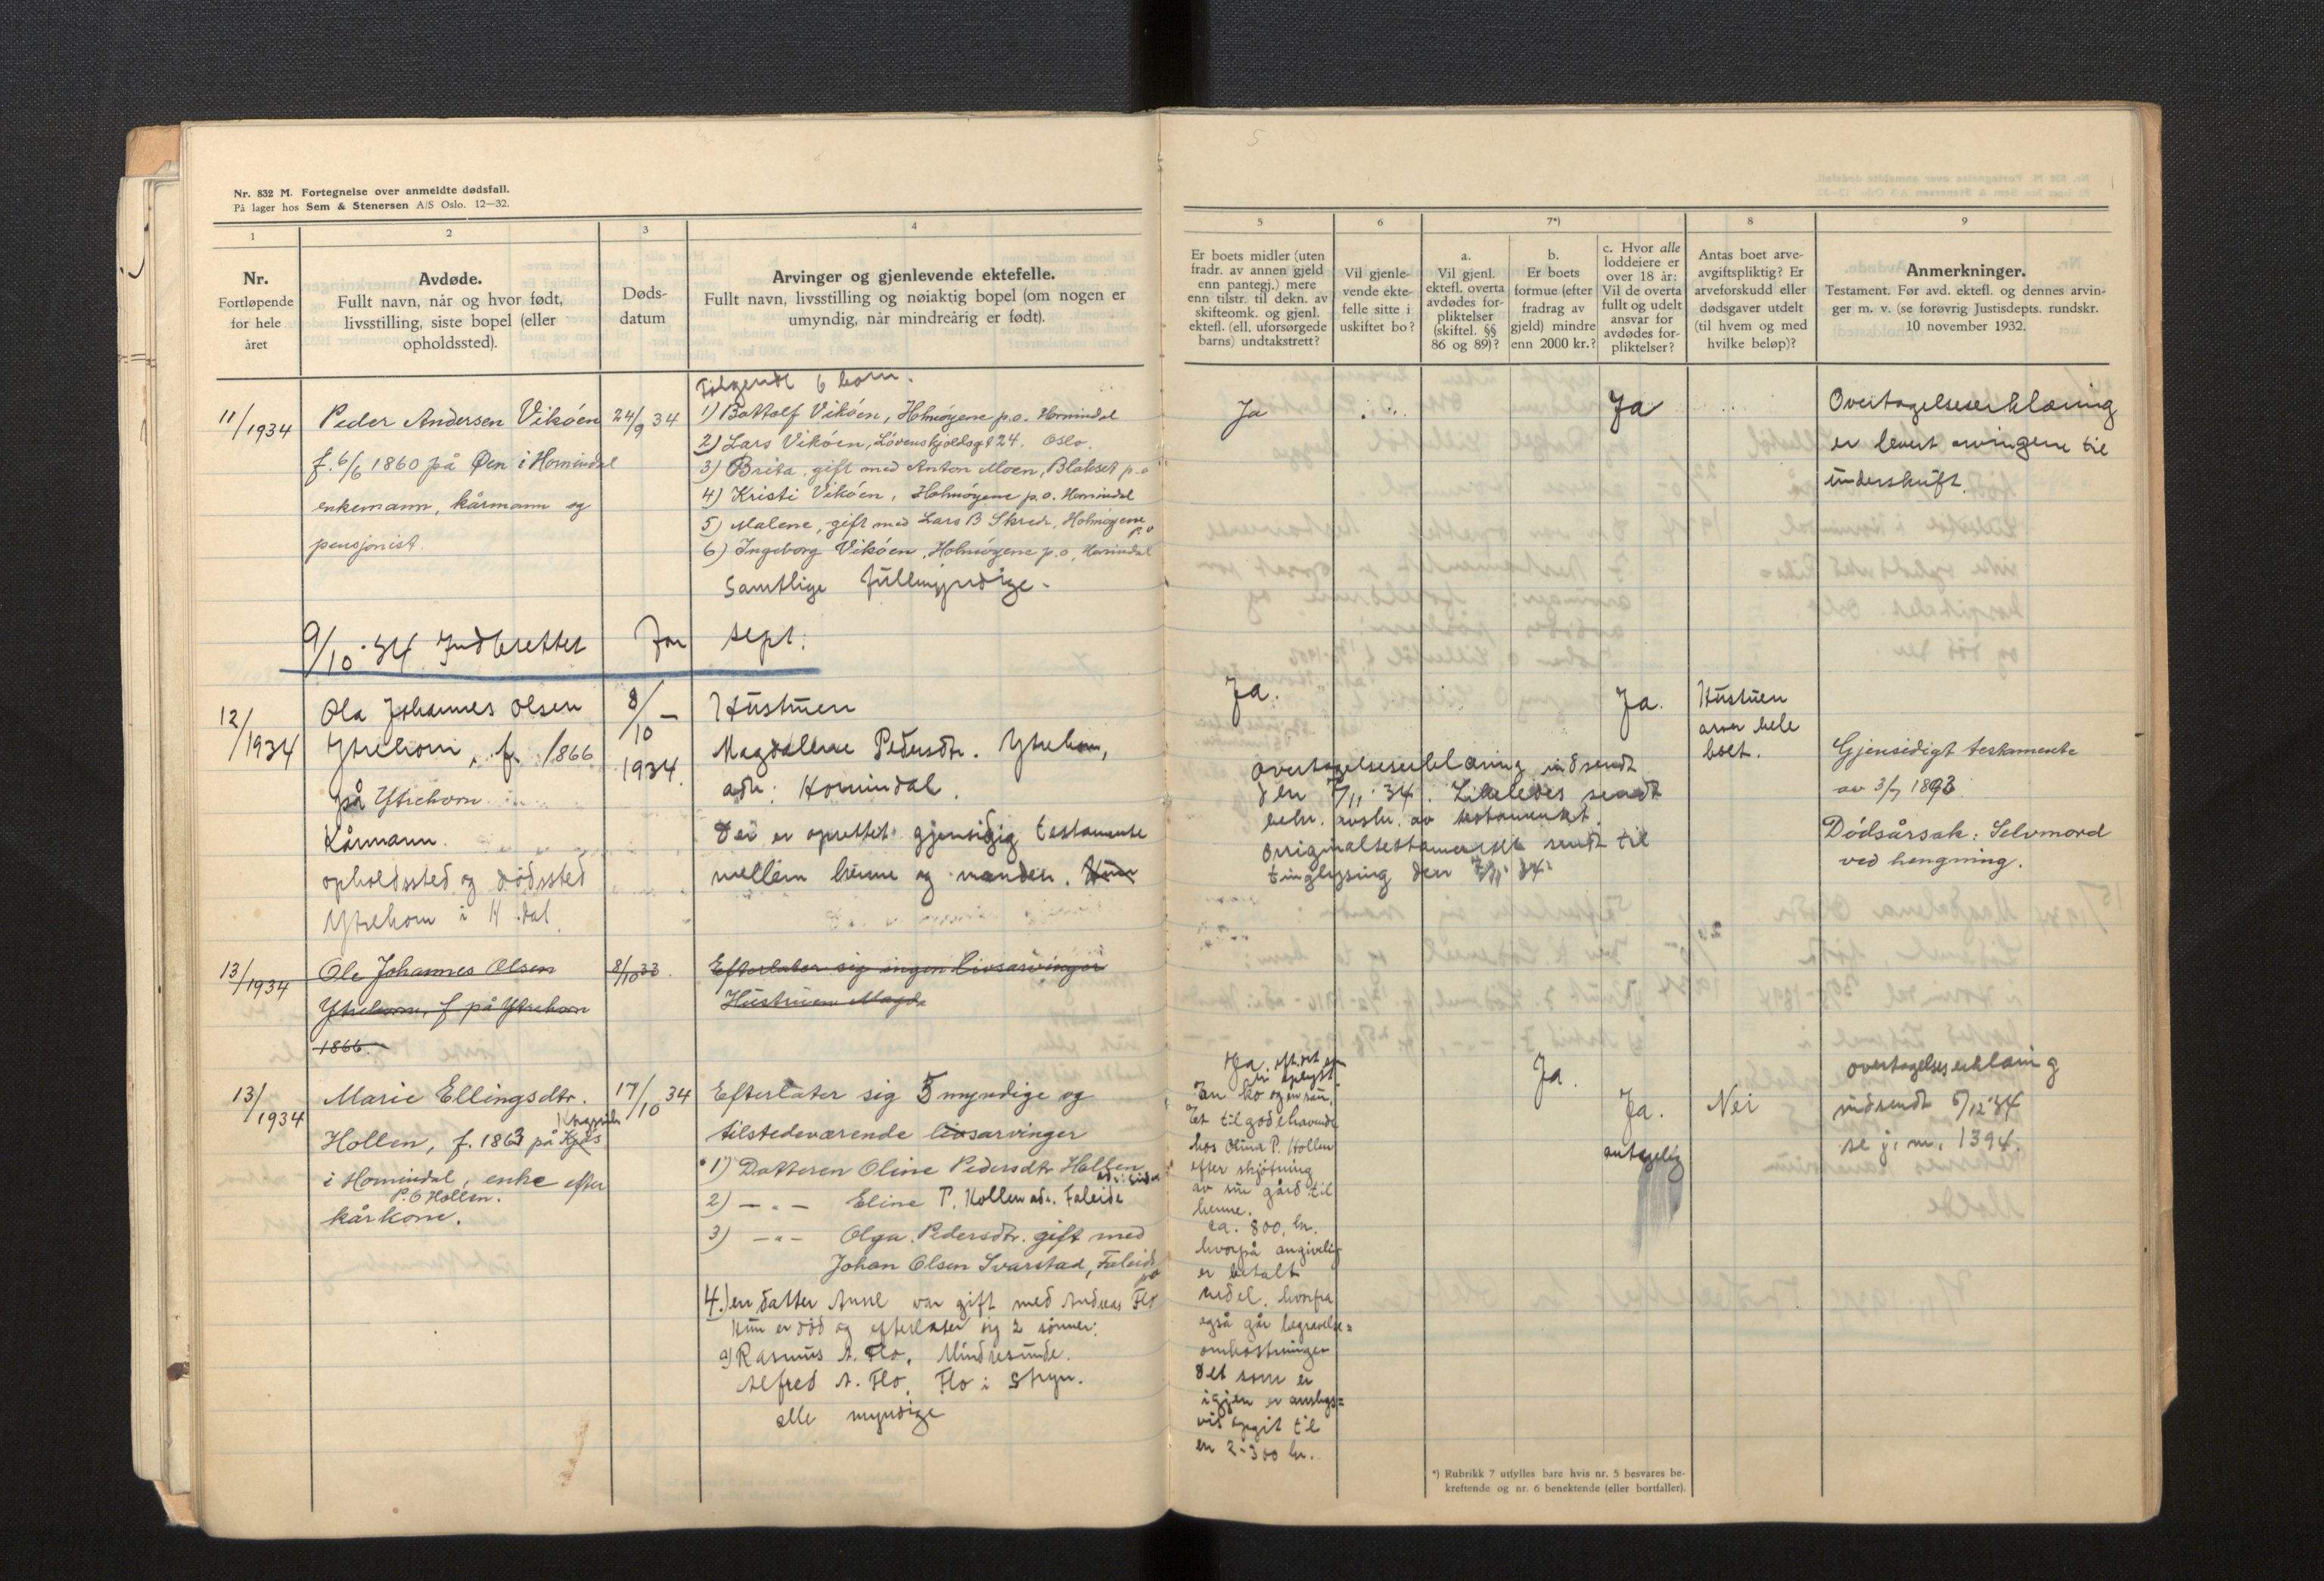 Nr. 832 M. Fortegnelse over anmeldte dødsfall.
På lager hos Sem & Stenersen A/S Oslo. 12—32.
1
2
3
4
Nr.
Fortløpende
for hele
året
Avdøde.
Fullt navn, når og hvor født,
livsstilling, siste bopel (eller
opholdssted).
Døds-
datum
Arvinger og gjenlevende ektefelle.
Fullt navn, livsstilling og nøiaktig bopel (om nogen er
umyndig, når mindreårig er født).
5
6
7*)
8
9
Er boets midler (uten
fradr. av annen gjeld
enn pantegj.) mere
enn tilstr. til dekn. av
skifteomk. og gjenl.
ektefl. (ell. uforsørgede
barns) undtakstrett?
Vil gjenle-
vende ekte-
felle sitte i
uskiftet bo?
a.
Vil gjenl.
ektefl. overta
avdødes for-
pliktelser
(skiftel. §§
86 og 89)?
b.
Er boets
formue (efter
fradrag av
gjeld) mindre
enn 2000 kr.?
c. Hvor alle
loddeiere er
over 18 år:
Vil de overta
fullt og udelt
ansvar for
avdødes for-
pliktelser?
Antas boet arve-
avgiftspliktig? Er
arveforskudd eller
dødsgaver utdelt
(til hvem og med
hvilke beløp)?
Anmerkninger.
Testament. Før avd. ektefl. og dennes arvin-
ger m. v. (se forøvrig Justisdepts. rundskr.
10 november 1932.
11/1934
Peder Andersen Vikóen
f. 6/6 1860 på Øen i Hornindal
enkemann, kårmann og
pensjonist.
24/9 34
Følgende 6 born.
1) Bottolf Vikóen, Holmóyene p.o. Hornindal
2) Lars Vikóen, Lóvenskjoldsgt 24. Oslo.
3) Brita, gift med Anton Moen, Blakset p.o
4) Kristi Vikóen, Holmóyene p.o. Hornindal
5) Malene, gift med Lars B Skrede, Holmóyene
p.o
6) Ingeborg Vikóen, Holmóyene p.o, Hornindal
Samtlige fullmyndige.
Ja
Ja
Overtagelseserklæring
er levert arvingene til
underskrift.
9/10-34 Indberettet for sept:
12/1934
Ola Johannes Olsen
Ytrehorn, f. 1866
på Ytrehorn
Kårmann.
opholdssted og dódssted
Ytrehorn i H.dal.
8/10 —
1934.
Hustruen
Magdallene Pedersdtr. Ytrehorn,
adr: Hornindal.
Der er oprettet gjensidig testamente
mellem henne og manden. Hun
Ja.
Ja.
Hustruen
arver hele
boet.
overtagelseserklæring indsendt
den 7/11 34. Likeledes sendt
bekr. avskr. av testamentet.
Originaltestamentet sendt til
tinglysing den 7/11 34.
Gjensidigt testamente
av 3/7 1893.
Dódsårsak: Selvmord
ved hengning.
13/1934
Ole Johannes Olsen
Ytrehorn, f på Ytrehorn
1866.
8/10 33.
Efterlater sig ingen livsarvinger
Hustruen Magd.
13/1934
Marie Ellingsdtr.
Hollen, f. 1863 på
i Hornindal, enke efter
P. O Hollen.
kårkone.
17/10 34
Efterlater sig 5 myndige og
tilstedeværende livsarvinger
1) Datteren Oline Pedersdtr Hollen
2) — " — Eline P. Hollen adr. Faleide
3) — " — Olga Pedersdtr. gift med
Johan Olsen Svarstad, Faleide
po
4.) en datter Anne var gift med Andreas Flo
Hun er død og efterlater sig 2 sønner:
a) Rasmus A. Flo, Mindresunde.
Alfred A. Flo, Flo i Stryn.
alle myndige
Ja.
En ko og en sau,
Et tilgodehavende
hos Olina P. Hollen
efter skjøtning
av sin gård til
henne.
ca. 800, kr.
hvorpå angivelig
er betalt
en del, hvorfra
også går begravelse=
omkostninger
Det som er
igjen er anslags=
vis opgit til
en 2-300 kr.
Ja.
Ja.
antagelig
Nei
overtagelseserklæring
indsendt 5/12 34
se j. nr. 1394.
*) Rubrikk 7 utfylles bare hvis nr. 5 besvares be-
kreftende og nr. 6 benektende (eller bortfaller).